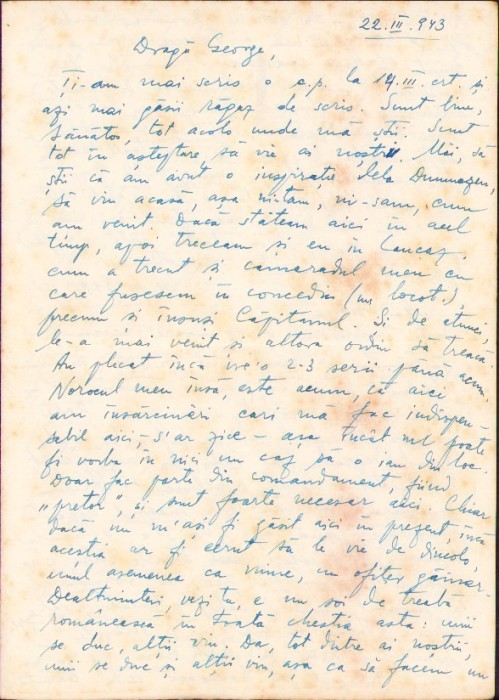 22.III.943
Dragă George,
Ți-am mai scris o c.p. la 14.III.crt. și
azi mai găsii răgaz de scris. Sunt bine,
sănătos, tot acolo unde mă știi. Sunt
tot în așteptare să vie ai noștri. Măi, să
știi că am avut o inspirație dela Dumnezeu,
să vin acasă, așa ni-tam, ni-sam, cum
am venit. Dacă stăteam aici în acel
timp, apoi treceam și eu în Caucaz,
cum a trecut și camaradul meu cu
care fusesem în concediu (un locot.)
precum și însuși Căpitanul. Și de atunci,
le-a mai venit și altora ordin să treacă.
Au plecat încă vre'o 2-3 serii până acum.
Norocul meu însă, este acum, că aici
am însărcinări cari mă fac indispen-
sabil aici, s'ar zice - așa încât nu poate
fi vorba în nici un caz să o iau din loc.
Doar fac parte din comandament, fiind
"pretor", și sunt foarte necesar aici. Chiar
dacă nu m'ași fi găsit aici în prezent, încă
aceștia ar fi cerut să le vie de dincolo,
unul asemenea ca mine, un ofițer
Dealtminteri, vezi tu, e un soi de treabă
românească în toată chestia asta: unii
se duc, alții vin. Da, tot dintre ai noștri,
unii se duc și alții vin, așa ca să facem un